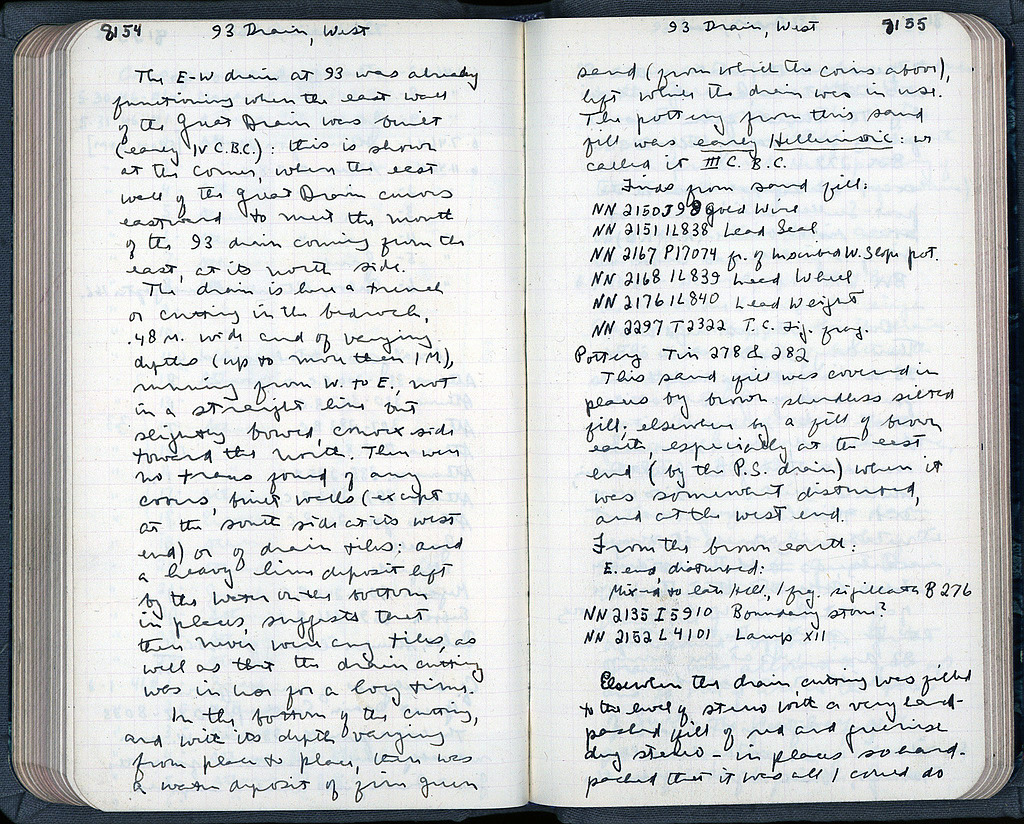 8154
93 Drain, West
The E-W drain at 93 was already
functioning when the east wall
of the Great Drain was built
(early IV C.B.C.): this is shown
at the corner, where the east
wall of the Great Drain curves
eastward to meet the mouth
of the 93 drain coming from the
east, at its north side.
The drain is here a trench
or cutting in the bedrock,
.48 M. wide and of varying
depths (up to more than 1 M),
running from W. to E. not
in a straight line but
slightly bowed, convex side
toward the north. There were
no traces found of any
covers, built walls (except
at the south side at its west
end) or of drain tiles: and
a heavy lime deposit left
by the water on the bottom
in places, suggests that
there never were any tiles, as
well as that the drain cutting
was in use for a long time.
In the bottom of the cutting,
and with its depth varying
from place to place, there was
a water deposit of fine green
93 Drain, West
8155
sand (from which the coins above),
left while the drain was in use.
The pottery from this sand
fill was early Hellenistic: we
called it III C. B.C.
Finds from sand fill:
NN 2150 J98 gold wire
NN 2151 IL838 Lead Seal
NN 2167 P17074 fr. of inscribed W. Slope pot.
NN 2168 IL839 Lead Wheel
NN 2176 IL840 Lead Weight
NN 2297 T2322 T.C. fig. frag.
Pottery Tin 278 & 282
This sand fill was covered in
places by brown sherdless silted
fill; elsewhere by a fill of brown
earth, especially at the east
end (by the P.S. drain) where it
was somewhat disturbed,
and at the west end.
From the brown earth:
E. end, disturbed:
Mixed to late Hell, 1 frag. sigillata B 276
NN 2135 I 5910 Boundary stone?
NN 2152 L 4101 Lamp XII
Elsewhere the drain cutting was filled
to the level of stereo with a very hard-
packed fill of red and greenish
dug stereo - in places so hard-
packed that it was all I could do